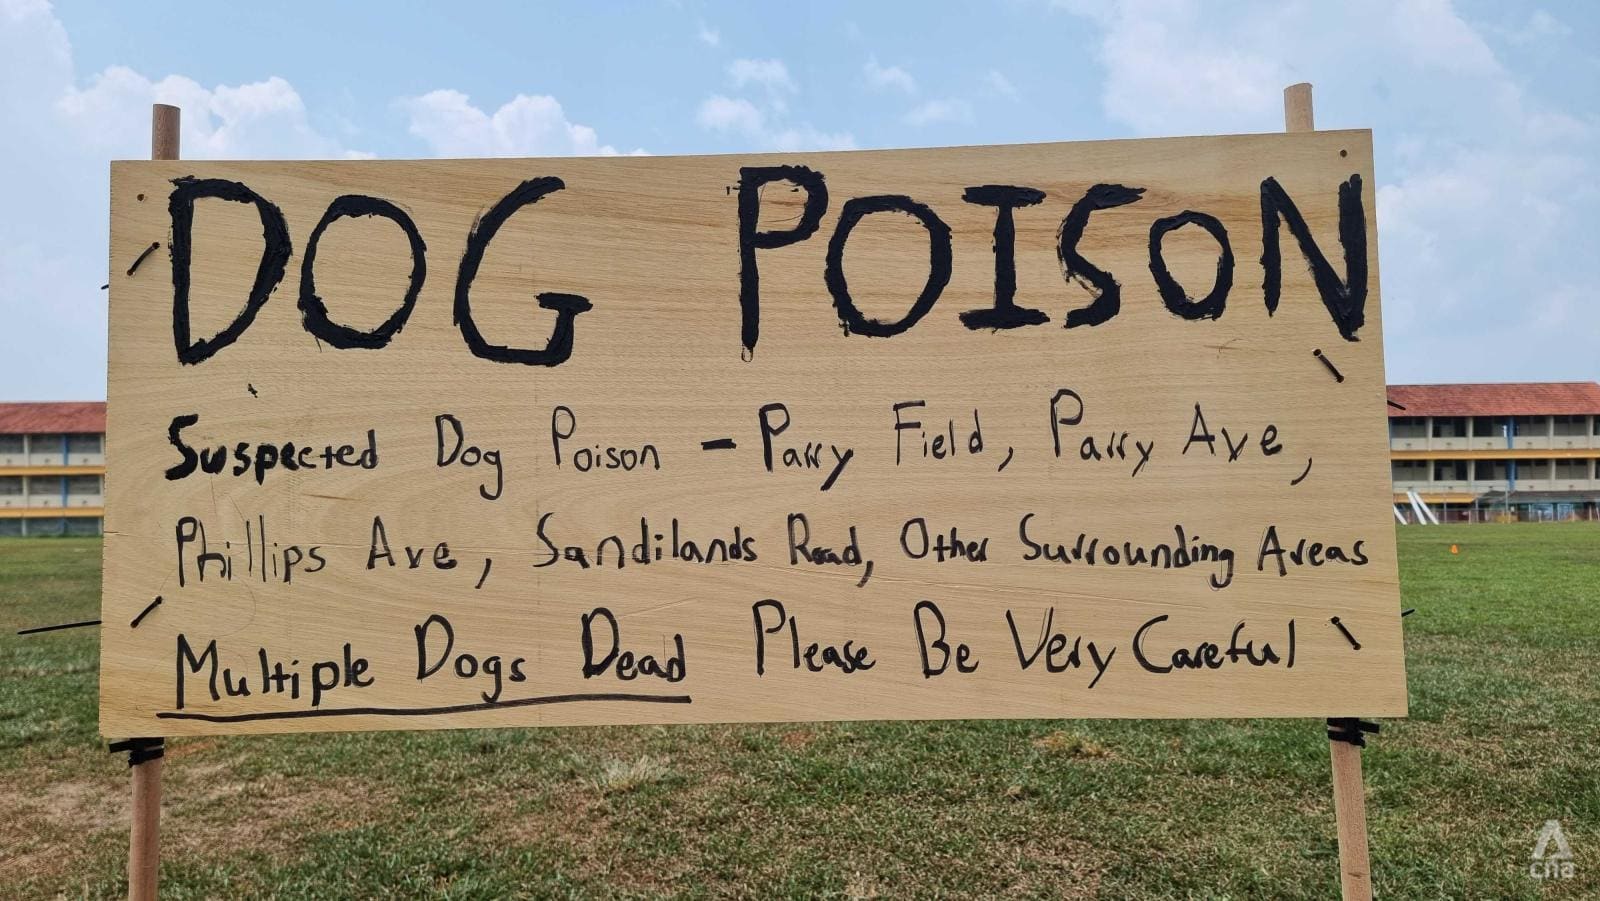 DOG POISON
Suspected Dog Poison - Parry Field, Parry Ave,
Phillips Ave, Sandilands Road, Other Surrounding Areas
Multiple Dogs Dead Please Be Very Careful
cna